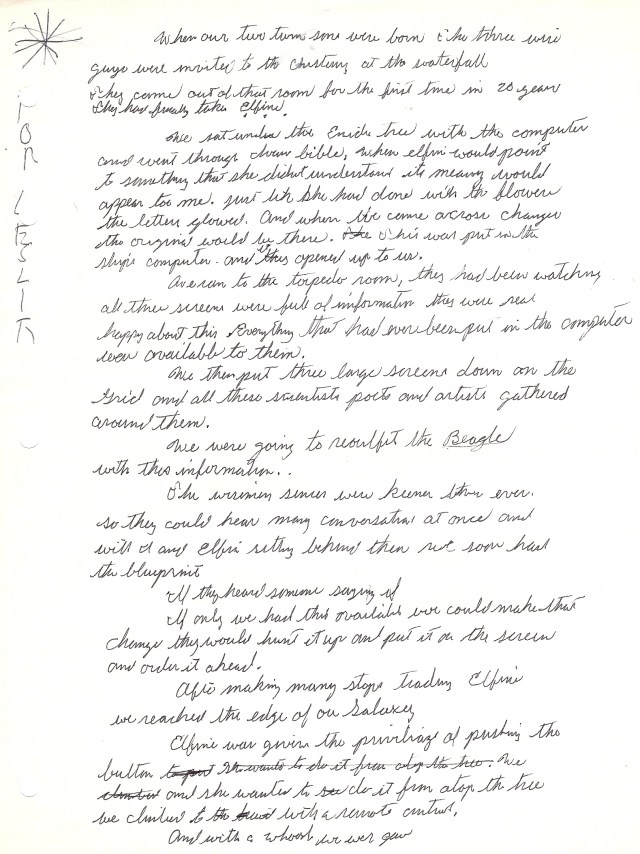 FOR LESLIE
When our two twin sons were born & the three wise
guys were invited to the cristening at the waterfall
They came out of that room for the first time in 20 years
They had finally take Elfini.
We sat under the tree with the computer
and went through bible, when elfini would point
to something that she didn't understand its meaning would
appear too me. just lik she had done with the
the letters glowed. And when we came across changes
the original would be there. This was put in the
ships computer. and this opened up to us.
We ran to the torpedo room, they had been watching
all three screens were full of information they were real
happy about this Everything that had ever been put in the computer
was available to them.
We then put three large screens down on the
Grid and all these scientists poets and artists gathered
around them.
We were going to reoutfit the Beagle
with this information..
The senses were keener then ever.
so they could hear many conversations at once and
with I and Elfini sitting behind them we soon had
the blueprint
If they heard someone saying if
If only we had this available we could make that
change they would hunt it up and put it on the screen
and order it ahead.
After making many stops trading Elfini
we reached the edge of our Galaxey
Elfini was given the privilage of pushing the
button to put She wants to do it from atop the tree. We
climbed and she wanted to do it from atop th tree
we climbed to the with a remote control.
And with a whoosh we wer gon